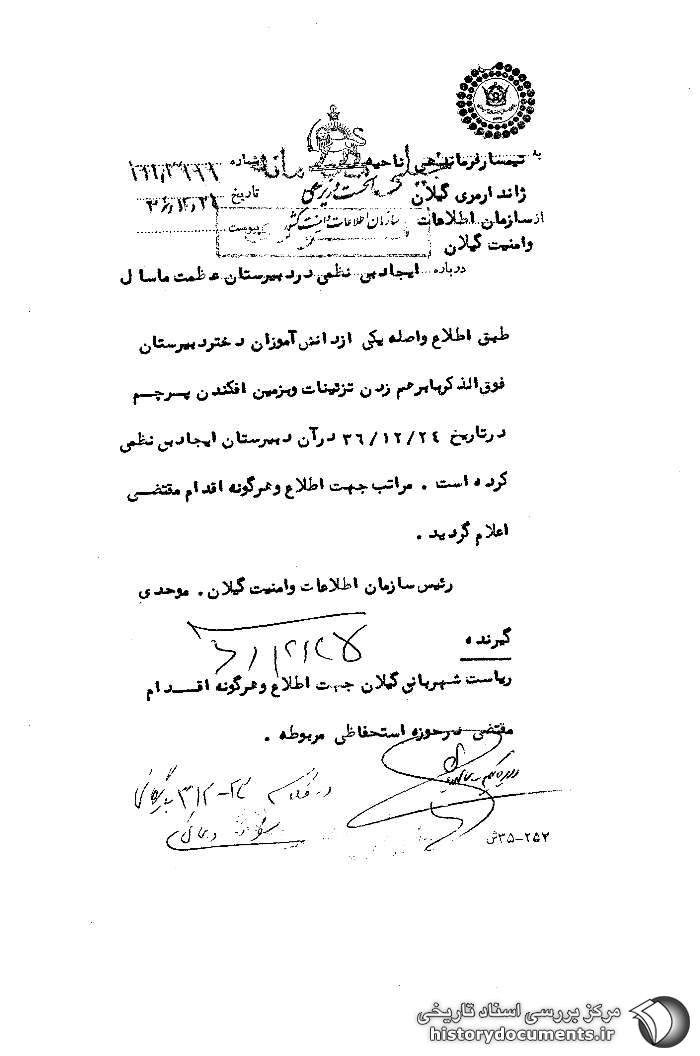 به تیمسار فرماندهی ناحیه
ژاندارمری گیلان
از سازمان اطلاعات
وامنیت گیلان
شماره
تاریخ
پیوست
نخست وزیری
سازمان اطلاعات و امنیت کشور
درباره ایجاد بی نظمی در دبیرستان عظمت ماسال
طبق اطلاع واصله یکی از دانش آموزان دختر دبیرستان
فوق الذکر با برهم زدن تزئینات و بزمین افکندن پرچم
در تاریخ ۳۶/۱۲/۲۴ در آن دبیرستان ایجاد بی نظمی
کرده است . مراتب جهت اطلاع و هرگونه اقدام مقتضی
اعلام گردید .
رئیس سازمان اطلاعات وامنیت گیلان . موحدی
گیرنده
ریاست شهربانی گیلان جهت اطلاع و هرگونه اقدام
مقتضی در حوزه استحفاظی مربوطه .
۳۵-۲۵۲ش
مرکز بررسی اسناد تاریخی
historydocuments.ir